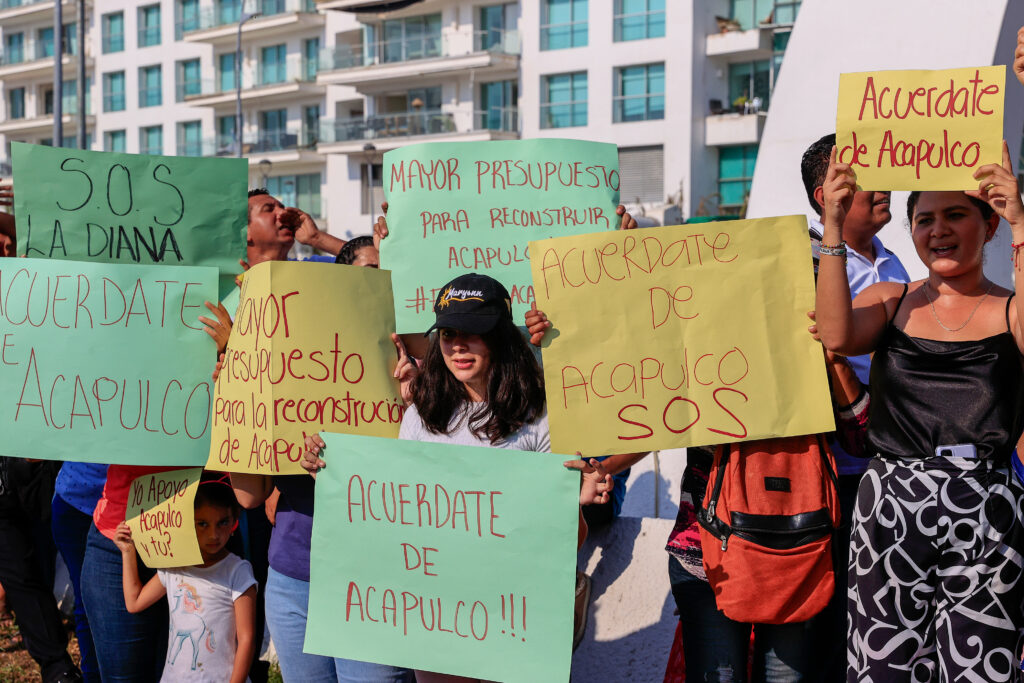 S.O.S
LA DIANA
MAYOR PRESUPUESTO
PARA RECONSTRUIR
ACAPULCO
Acuerdate
de Acapulco
ACUERDATE
DE
ACAPULCO
SOS
ACUERDATE
ACAPULCO
Mayor
Presupuesto
para la reconstrucción
de Acapulco
Maryann
Yo Apoyo
Acapulco
y tu?
ACUERDATE
DE
ACAPULCO!!!